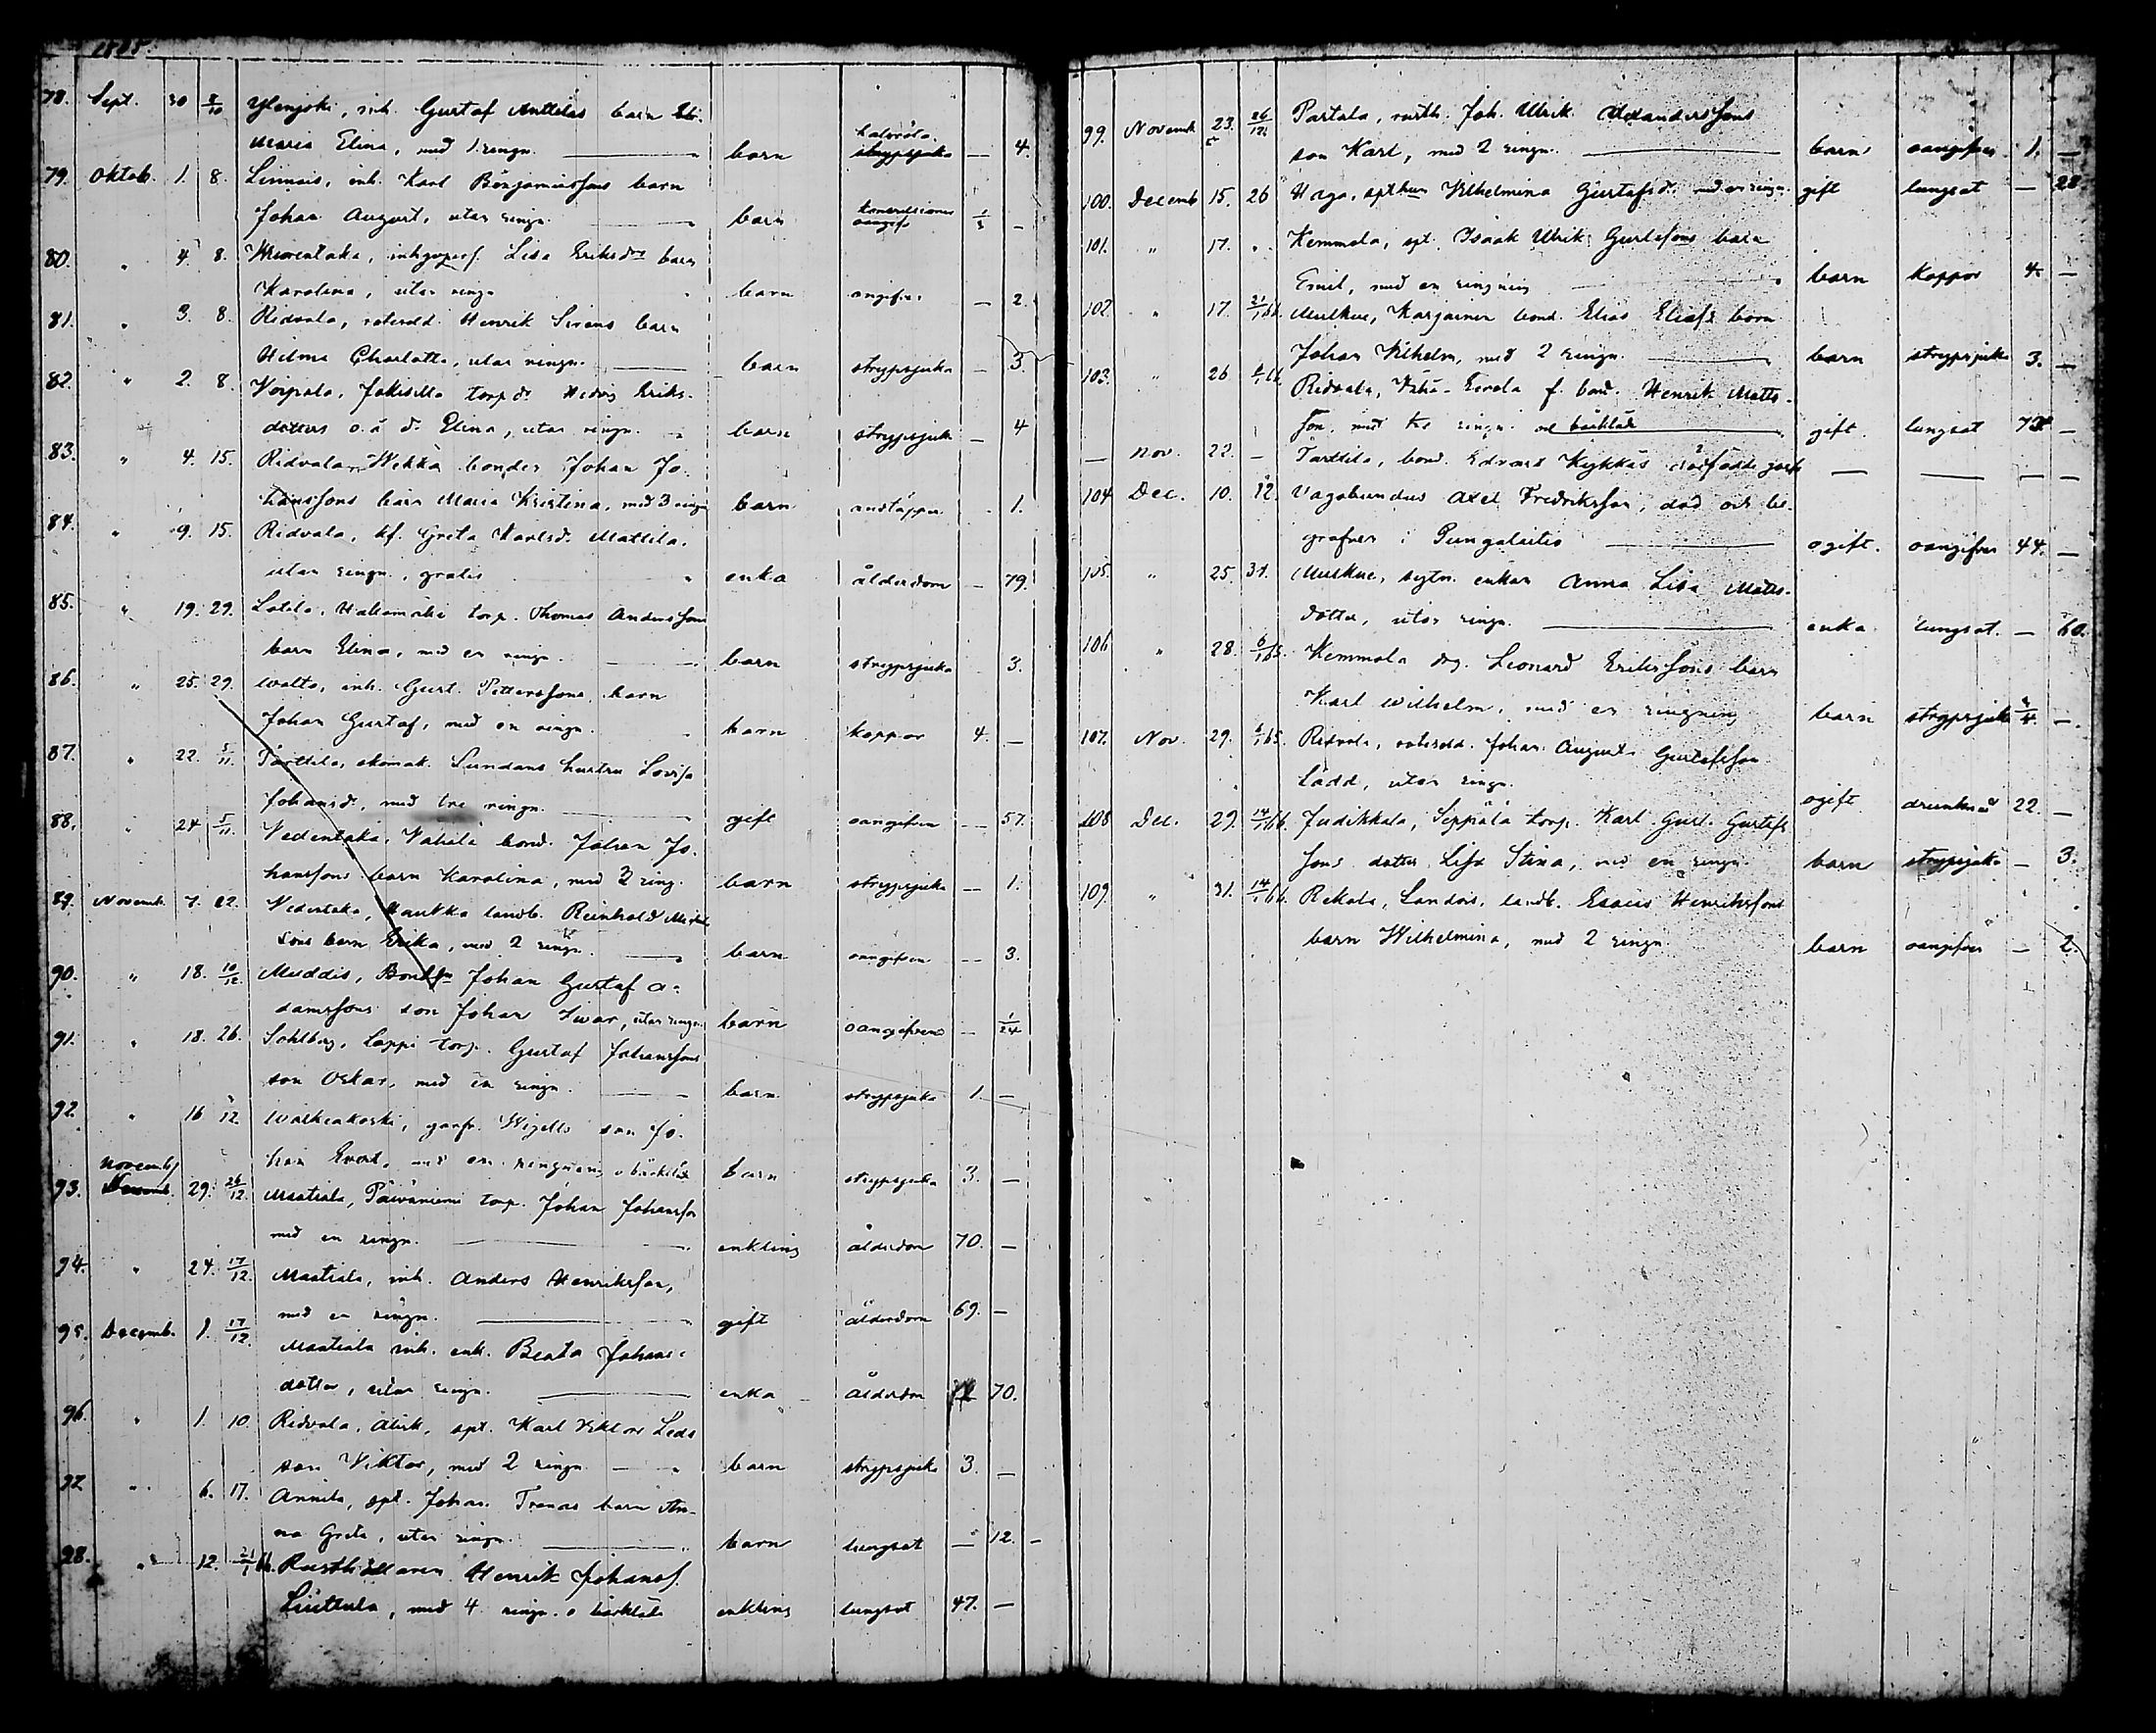 78. Sept. 30 8/10 Ylenjoki, inh. Gustaf Anttilas barn
Maria Elina, med 1 ringn. barn halsröta strypsjuka — 4.
79. Oktob. 1. 8. Linnais, inh. Karl Benjaminssons barn
Johan August, utan ringn. barn
80. " 4. 8. Lisa Eriksdrs barn
Karolina, utan ringn barn — 2.
81. " 3. 8. Ridvala, Henrik Sirens barn
Hilma Charlotta, utan ringn. barn strypsjuka — 3.
82. " 2. 8. Voipala, torp. dr Hedvig Eriks-
dotters o. ä. dr Elina, utan ringn. barn strypsjuka — 4
83. " 4. 15. Ridvala, Wekka bonden Johan Jo-
hanssons barn Maria Kristina, med 3 ringn barn andtäppa 1.
84. " 9. 15. Ridvala, Greta Karlsd. Mattila,
utan ringn., gratis enka ålderdom — 79.
85. " 19. 29. torp. Thomas Anderssons
barn Elina, med en ringn. barn strypsjuka 3.
86. " 25. 29. Walto, inh. Gust. Petterssons barn
Johan Gustaf, med en ringn. barn koppor 4. —
87. " 22. 5/11. Parttila, skomak. Lundans hustru Lovisa
Johansd., med tre ringn. gift oangifven — 57.
88. " 24 5/11. Vedentaka, Vahala bond. Johan Jo-
hanssons barn Karolina, med 2 ring. barn strypsjuka — 1.
89. Novemb. 7. 12. Vedentaka, Haukka landb. Reinhold
sons barn Erika, med 2 ringn. barn oangifven — 3.
90. " 18. 10/12. Muddis, Johan Gustaf A-
damssons son Johan Iwar, utan ringn. barn oangifven — 1/24
91. " 18. 26. Sohlberg, Lappi torp. Gustaf Johanssons
son Oskar, med en ringn. barn strypsjuka 1. —
92. " 16 12. Walkiakoski, son Jo-
han Evert, med en ringning o bårkläde barn strypsjuka 3. —
93. Novemb. 29. 26/12. Maatiala, Päiväniemi torp. Johan Johansson
med en ringn. enkling ålderdom 70. —
94. " 24. 17/12. Maatiala, inh. Anders Henriksson,
med en ringn. gift ålderdom 69. —
95. Decemb. 1. 17/12 Maatiala inh. enk. Beata Johans-
dotter, utan ringn. enka ålderdom 70.
96. " 1. 10. Ridvala, spt. Karl Viktor Leds
son Viktor, med 2 ringn barn strypsjuka 3. —
97 " 6. 17. Annila, spt. Johan Tranas barn An-
na Greta, utan ringn. barn lungsot — 12. —
98. " 12. 21/1 66. Rusthållaren Henrik Johanss.
Liuttula, med 4 ringn. o bårkläde enkling lungsot 47. —
99. Novemb 23. 26/12. Partala, rusth. Joh. Ulrik Alexanderssons
son Karl, med 2 ringn. barn oangifven 1. —
100. Decemb 15. 26 Haga, Vilhelmina Gustafsd. med en ringn. gift lungsot — 28
101. " 17. " Kemmola, spt. Isaak Ulrik Gustafsons barn
Emil, med en ringning barn koppor 4. —
102. " 17. 21/1 66. Mulkue, Karjainen bond. Elias Eliass. barn
Johan Vilhelm, med 2 ringn. barn strypsjuka 3. —
103. " 26 66. Ridvala, Eerola f. bond. Henrik Matts-
son, med tre ringn. och bårkläde gift. lungsot —
— Nov. 22. — Parttila, bond. Edvard Kykkäs dödfödde gosse — — — —
104 Dec. 10. 12. Vagabundus Axel Fredriksson, död och be-
grafven i Pungalaitio ogift. oangifven 44. —
105. " 25. 31. Muskue, sytn. enkan Anna Lisa Matts-
dotter, utan ringn. enka lungsot. — 60.
106 " 28. Kemmola drg. Leonard Erikssons barn
Karl Wilhelm, med en ringning barn strypsjuka 3/4 —
107. Nov. 29. Ridvala, Johan August Gustafsson
Ladd, utan ringn. ogift drunknad 22. —
108 Dec. 29. 14/1 66. Judikkala, Seppälä torp. Karl Gust. Gustafs
sons dotter Lisa Stina, med en ringn. barn strypsjuka — 3.
109. " 31. 14/1 66. Rekola, landb. Esaias Henrikssons
barn Wilhelmina, med 2 ringn. barn oangifven — 2.